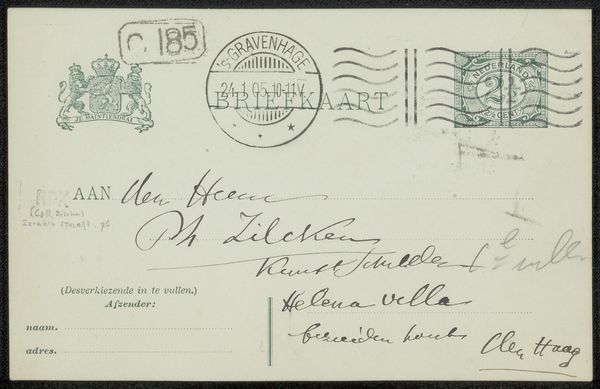 C 185
'S-GRAVENHAGE
24.1.05.10-11V
BRIEFKAART
NEDERLAND
2½
2½ CENT
JE MAINTIENDRAI
AAN den Heer
Ph Zilcken
Kunstschilder
Helena villa
bezuidenhout
den Haag
RPK
(Coll. Zilcken)
(Desverkiezende in te vullen.)
Afzender:
naam.
adres.